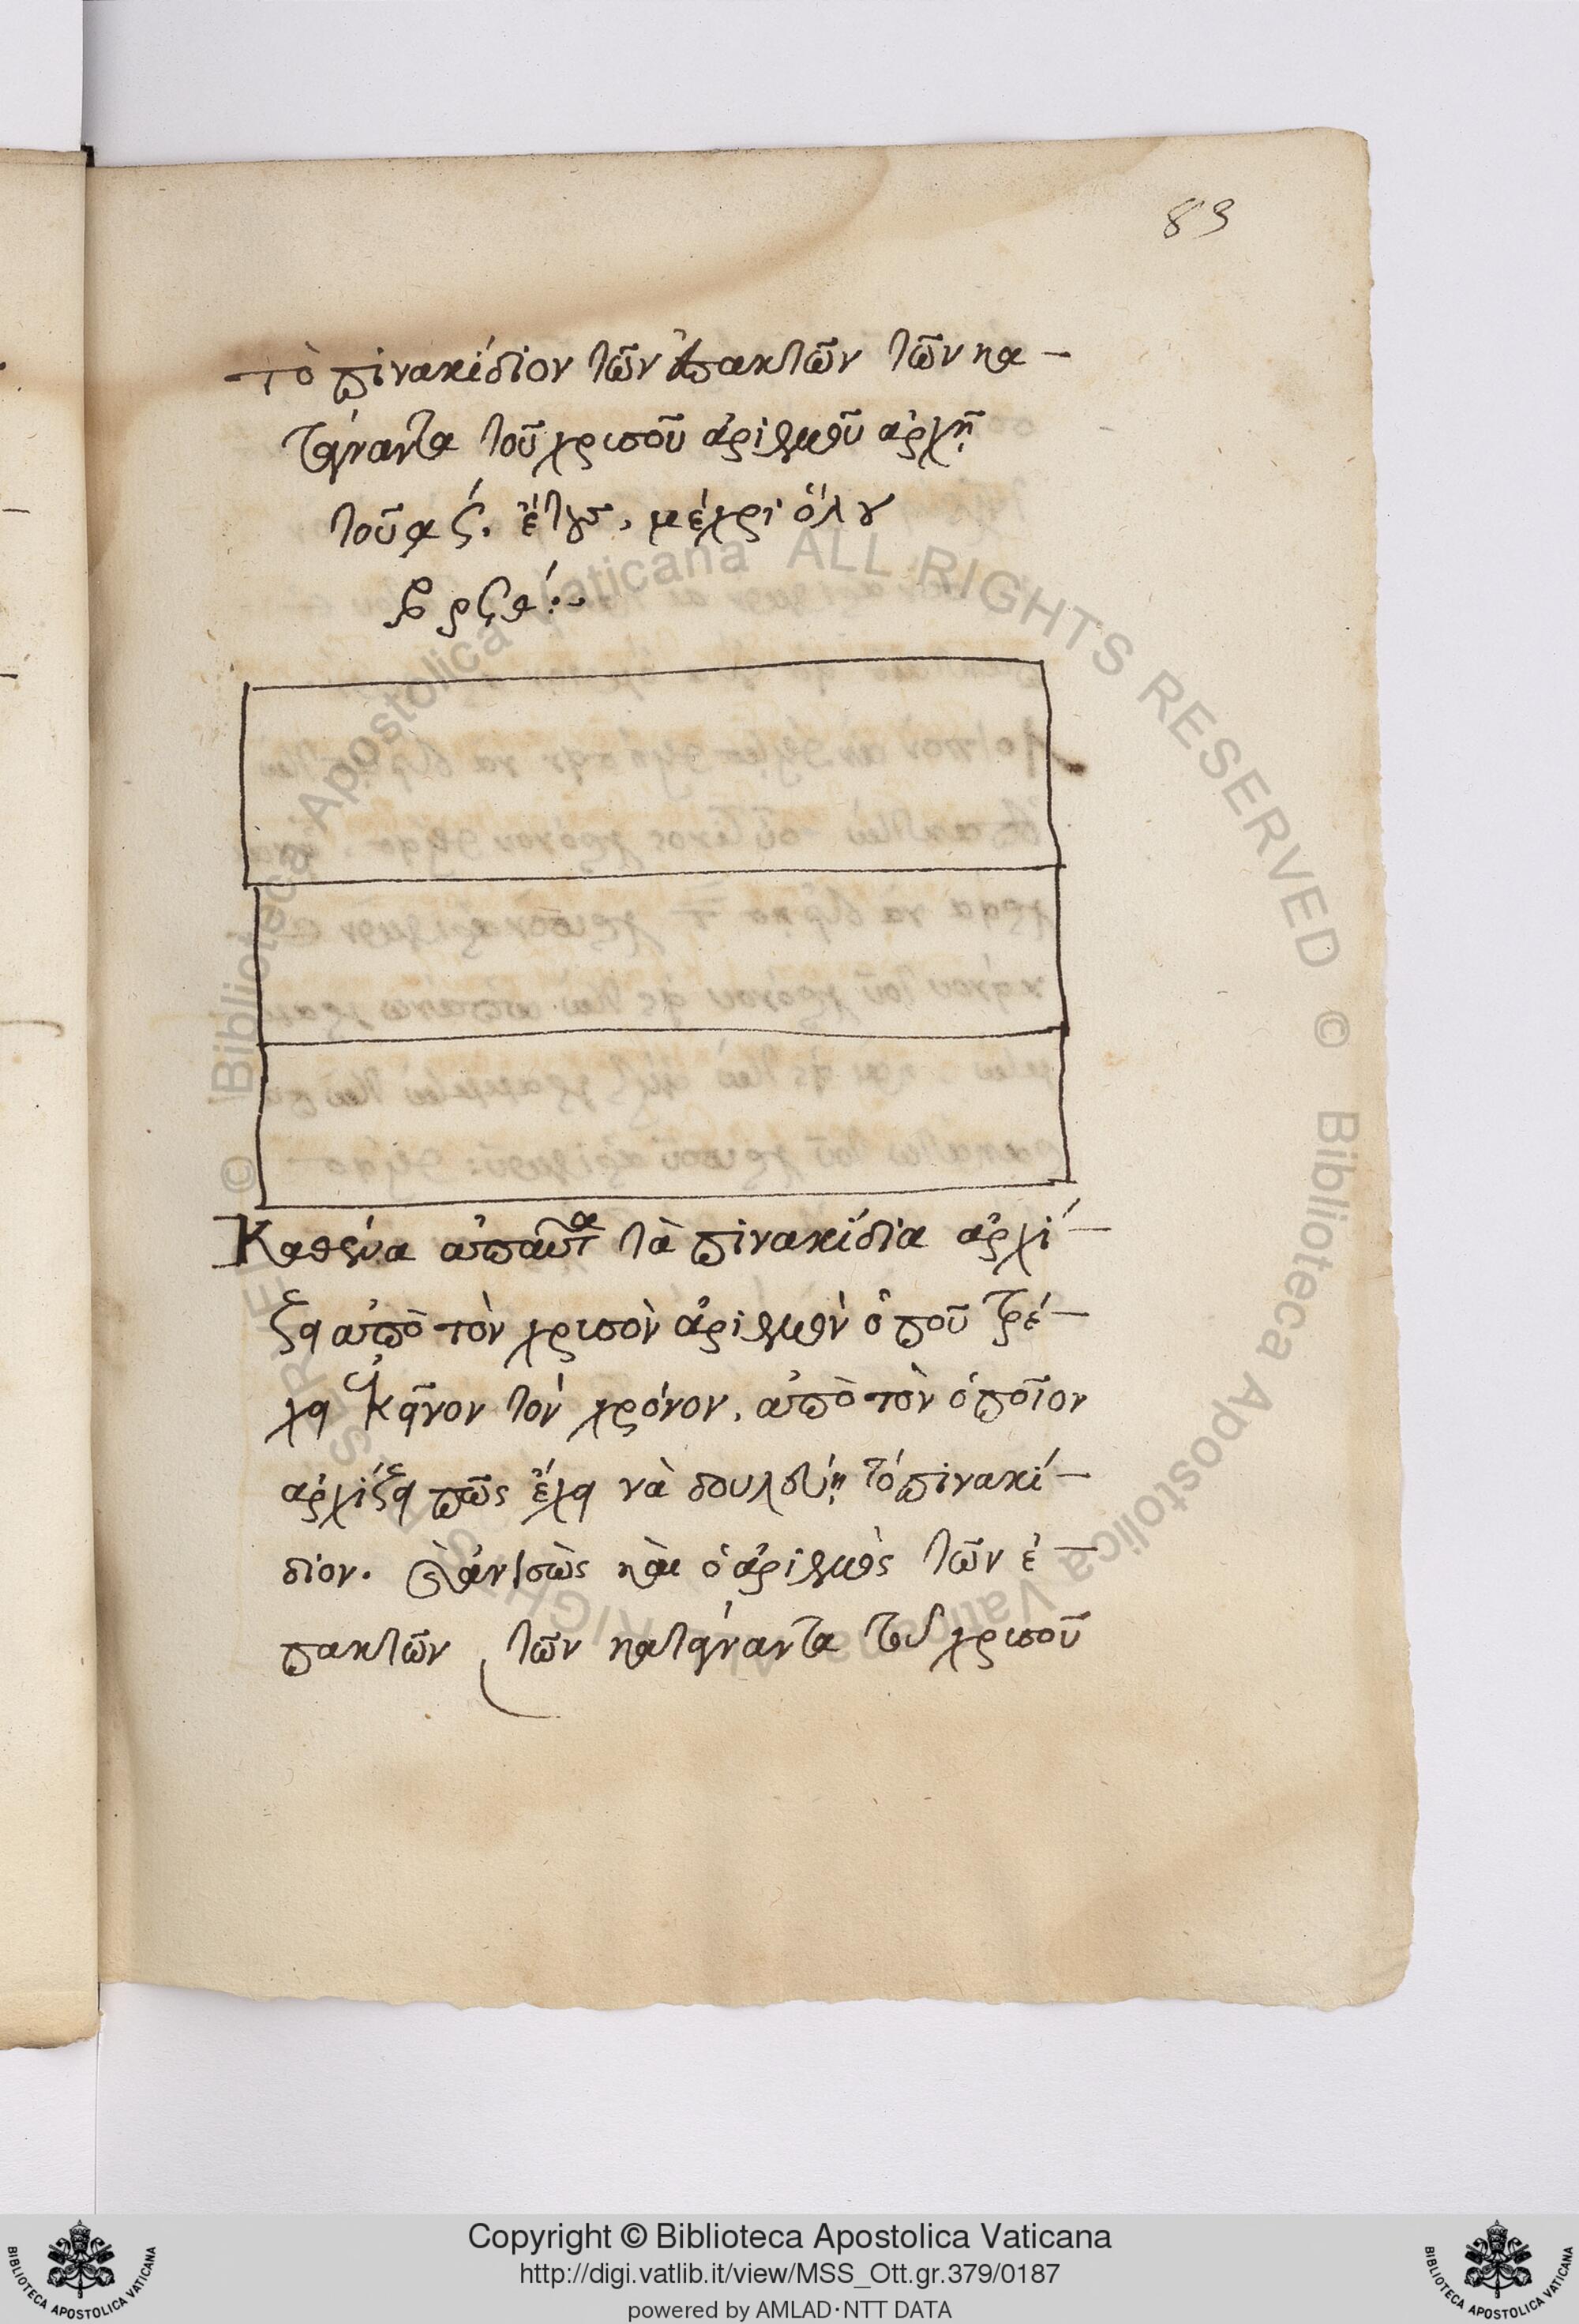 83
τὸ πινακίδιον τῶν ἐπακτῶν τῶν κα-
τάναντα τοῦ χρυσοῦ ἀριθμοῦ ἀρχῆ
τοῦ ἔτους, μέχρι ὅλου
Καθένα ἀπαῦτα τὰ πινακίδια ἀρχί-
ζει ἀπὸ τὸν χρυσὸν ἀριθμὸν ὁποῦ τρέ-
χει ἐκεῖνον τὸν χρόνον, ἀπὸ τὸν ὁποῖον
ἀρχίζει πῶς ἔχει νὰ δουλεύη τὸ πινακί-
διον. καὶ ὁ ἀριθμὸς τῶν ἐ-
πακτῶν τῶν κατάναντα τοῦ χρυσοῦ
© Biblioteca Apostolica Vaticana ALL RIGHTS RESERVED © Biblioteca Apostolica Vaticana ALL RIGHTS RESERVED
BIBLIOTECA APOSTOLICA VATICANA
Copyright © Biblioteca Apostolica Vaticana
http://digi.vatlib.it/view/MSS_Ott.gr.379/0187
powered by AMLAD·NTT DATA
BIBLIOTECA APOSTOLICA VATICANA